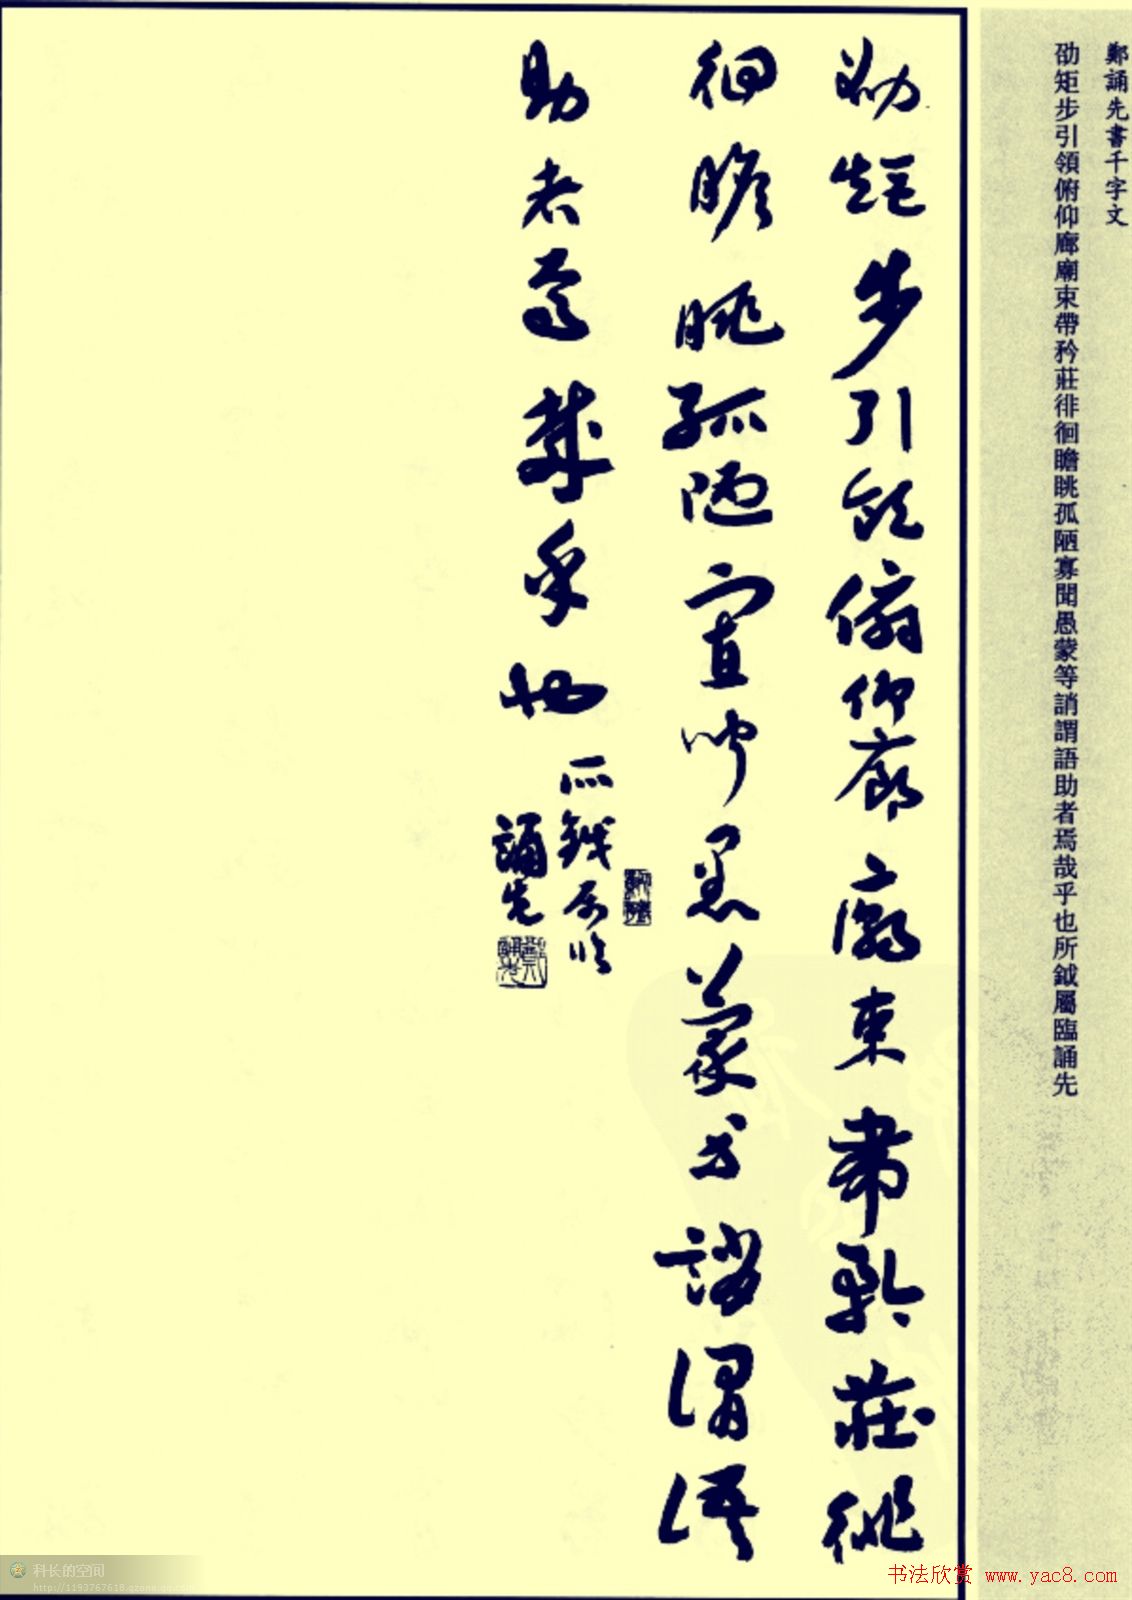 鄭誦先書千字文
劭矩步引領俯仰廊廟束帶矜莊徘徊瞻眺孤陋寡聞愚蒙等誚謂語助者焉哉乎也所鉞屬臨誦先
劭矩步引領俯仰廊廟束帶矜莊徘
徊瞻眺孤陋寡聞愚蒙等誚謂語
助者焉哉乎也
所鉞屬臨
誦先
科长的空间
http://1193767618.qzone.qq.com
书法欣赏 www.yac8.com